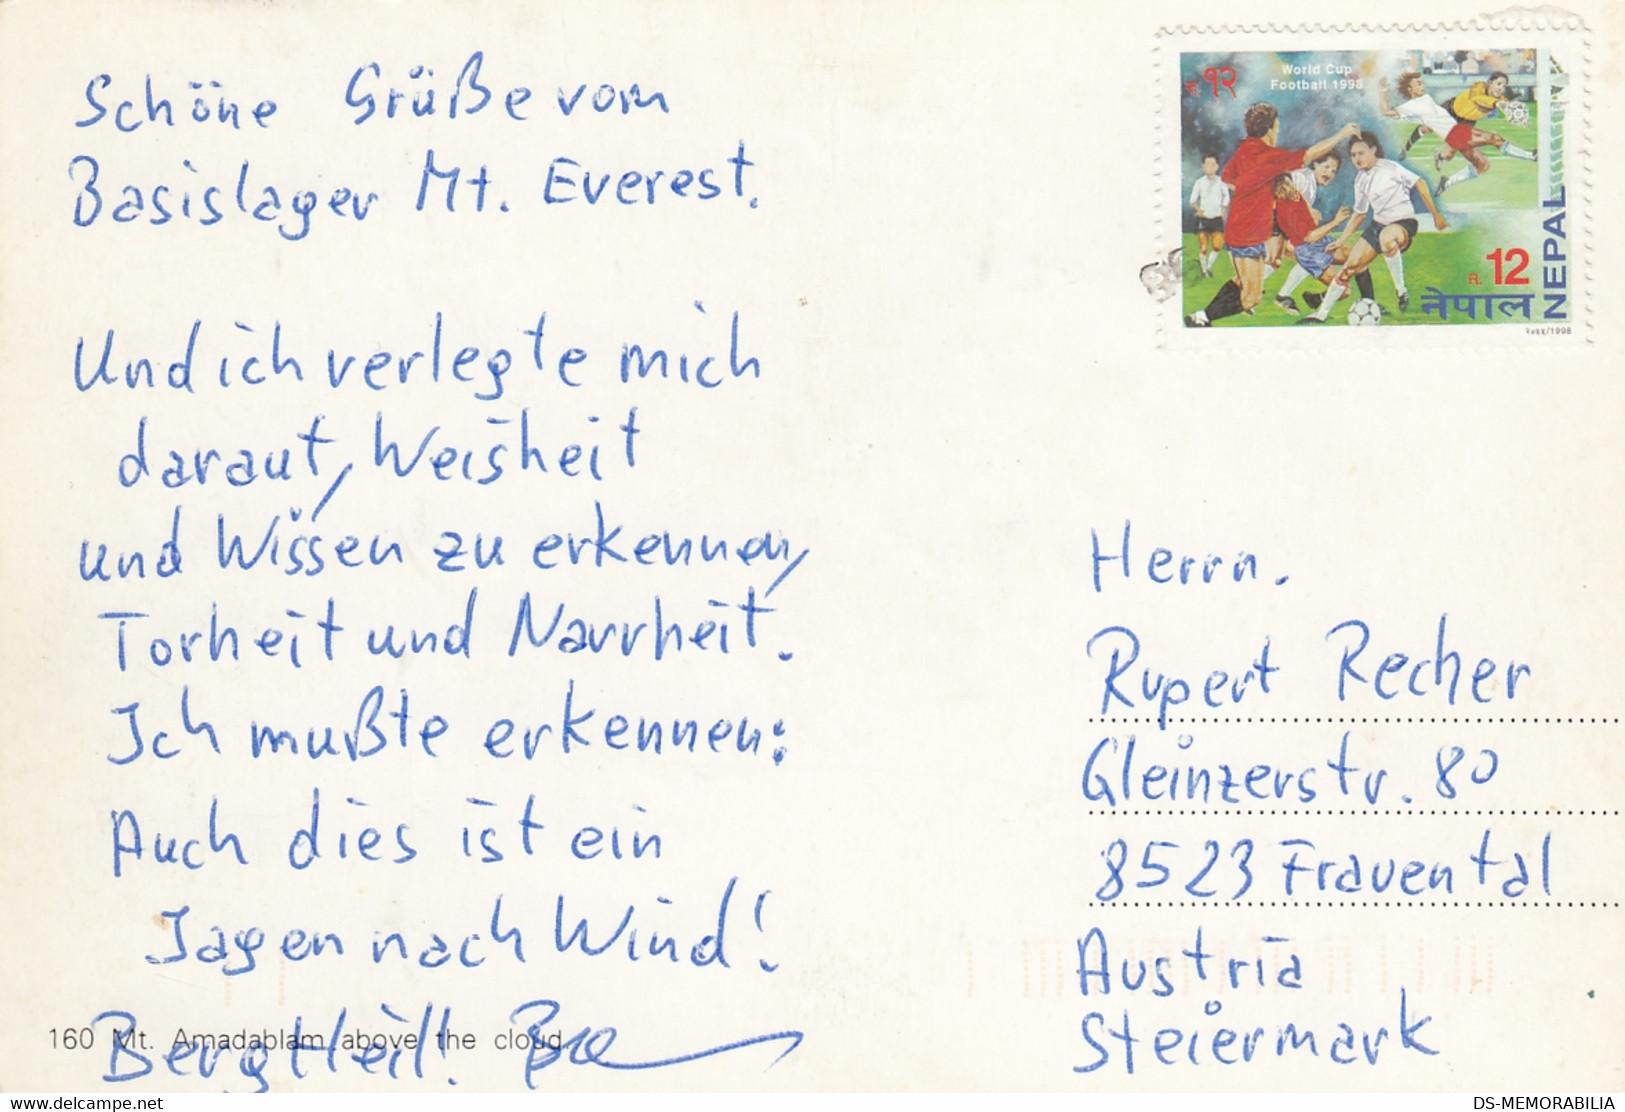 Schöne Grüße vom
Basislager Mt. Everest.
Und ich verlegte mich
darauf, Weisheit
und Wissen zu erkennen,
Torheit und Narrheit.
Ich mußte erkennen:
Auch dies ist ein
Jagen nach Wind!
Berg Heil!
160 Mt. Amadablam above the cloud
World Cup
Football 1998
रु. १२
R. 12
नेपाल
NEPAL
Herrn.
Rupert Recher
Gleinzerstr. 80
8523 Frauental
Austria
Steiermark
delcampe.net
DS-MEMORABILIA